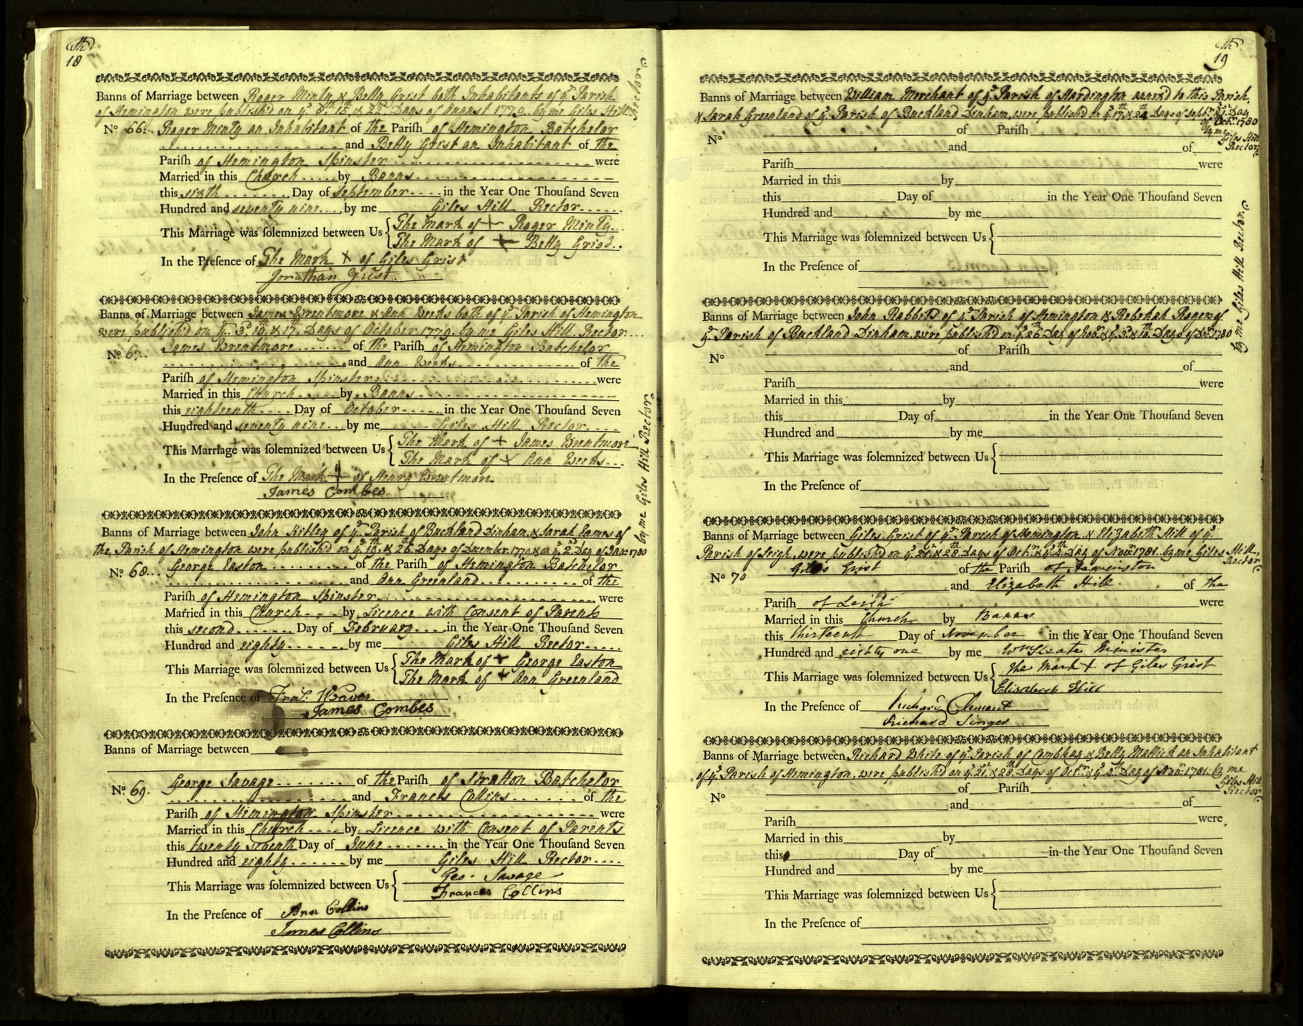 18
Banns of Marriage between Roger Minty & Betty Grist both Inhabitants of yᵉ Parish
of Hemington were publish'd on yᵉ 8th 15 & 22 Days of August 1779 by me Giles Hill Rector
No 66 Roger Minty an Inhabitant of the Pariſh of Hemington Batchelor
and Betty Grist an Inhabitant of the
Pariſh of Hemington Spinster were
Married in this Church by Banns
this sixth Day of September in the Year One Thouſand Seven
Hundred and seventy nine by me Giles Hill Rector
This Marriage was ſolemnized between Us The Mark of + Roger Minty
The Mark of + Betty Grist
In the Preſence of The Mark + of Giles Grist
Jonathan Grist
Banns of Marriage between James Brentmore & Ann Weeks both of yᵉ Parish of Hemington
were publish'd on yᵉ 3d 10 & 17 Days of October 1779 by me Giles Hill Rector
No 67 James Brentmore of the Pariſh of Hemington Batchelor
and Ann Weeks of the
Pariſh of Hemington Spinster were
Married in this Church by Banns
this eighteenth Day of October in the Year One Thouſand Seven
Hundred and seventy nine by me Giles Hill Rector
This Marriage was ſolemnized between Us The Mark of + James Brentmore
The Mark of + Ann Weeks
In the Preſence of The Mark + of Henry Brentmore
James Combes
by me Giles Hill Rector
Banns of Marriage between John of yᵉ Parish of Buckland Dinham & Sarah Eames of
the Parish of Hemington were publish'd on yᵉ 19 & 26 Days of December 1779 & yᵉ 2d Day of Janʸ 1780
No 68 George Easton of the Pariſh of Hemington Batchelor
and Ann Greenland of the
Pariſh of Hemington Spinster were
Married in this Church by Licence with Consent of Parents
this second Day of February in the Year One Thouſand Seven
Hundred and eighty by me Giles Hill Rector
This Marriage was ſolemnized between Us The Mark of + George Easton
The Mark of + Ann Greenland
In the Preſence of Weaver
James Combes
Banns of Marriage between
No 69 George Savage of the Pariſh of Stratton Batchelor
and Frances Collins of the
Pariſh of Hemington Spinster were
Married in this Church by Licence with Consent of Parents
this twenty Day of June in the Year One Thouſand Seven
Hundred and eighty by me Giles Hill Rector
This Marriage was ſolemnized between Us Geo. Savage
Frances Collins
In the Preſence of Ann Collins
James Collins
19
Banns of Marriage between William Merchant of yᵉ Parish of Hardington to this Parish,
& Sarah Greenland of yᵉ Parish of Buckland Dinham, were publish'd on yᵉ 17 & 24 Days of Septʳ & yᵉ 1st Day
of Octʳ 1780
by me
Giles Hill
Rector
No of Pariſh
and of
Pariſh were
Married in this by
this Day of in the Year One Thouſand Seven
Hundred and by me
This Marriage was ſolemnized between Us
In the Preſence of
by me Giles Hill Rector
Banns of Marriage between John Rabbits of yᵉ Parish of Hemington & Rebekah of
yᵉ Parish of Buckland Dinham, were publish'd on yᵉ 26 Day of Novʳ & yᵉ 3d & 10 Days of Decʳ 1780
No of Pariſh
and of
Pariſh were
Married in this by
this Day of in the Year One Thouſand Seven
Hundred and by me
This Marriage was ſolemnized between Us
In the Preſence of
Banns of Marriage between Giles Grist of yᵉ Parish of Hemington & Elizabeth Hill of yᵉ
Parish of Leigh were publish'd on yᵉ 21 & 28 Days of Octʳ & yᵉ Day of Novʳ 1781 by me Giles Hill
Rector
No 70 Giles Grist of the Pariſh of Heminton
and Elizabeth Hill of the
Pariſh of Leigh were
Married in this Church by Banns
this thirteenth Day of November in the Year One Thouſand Seven
Hundred and eighty one by me Wm Keate Minister
This Marriage was ſolemnized between Us The Mark + of Giles Grist
Elizabeth Hill
In the Preſence of Richard Clement
Richard Singer
Banns of Marriage between Richard White of yᵉ Parish of & Betty an Inhabitant
of yᵉ Parish of Hemington, were publish'd on yᵉ 21 & 28 Days of Octʳ & yᵉ Day of Novʳ 1781 by me
Giles Hill
Rector
No of Pariſh
and of
Pariſh were
Married in this by
this Day of in the Year One Thouſand Seven
Hundred and by me
This Marriage was ſolemnized between Us
In the Preſence of